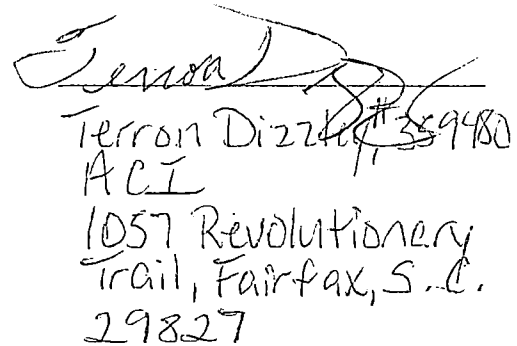 Terron Dizzley, #359480
ACI
1057 Revolutionary
Trail, Fairfax, S.C.
29827